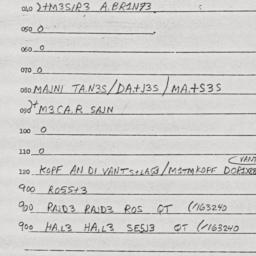 040 )+M3S/R3 A.BR1N93
050 0
060 0
070 0
080 MAJNI TA.N3S/DA.+J3S/MA.+S3S
090 )+M3CA.R SAJN
100 0
110 0
(VANT
120 KOPF AN DI VANTS+LAG3/M3TMKOPF
900 ROSS+3
900 RAJD3 RAJD3 ROS QT (/163240
900 HA.L3 HA.L3 SESJ3 QT (/163240